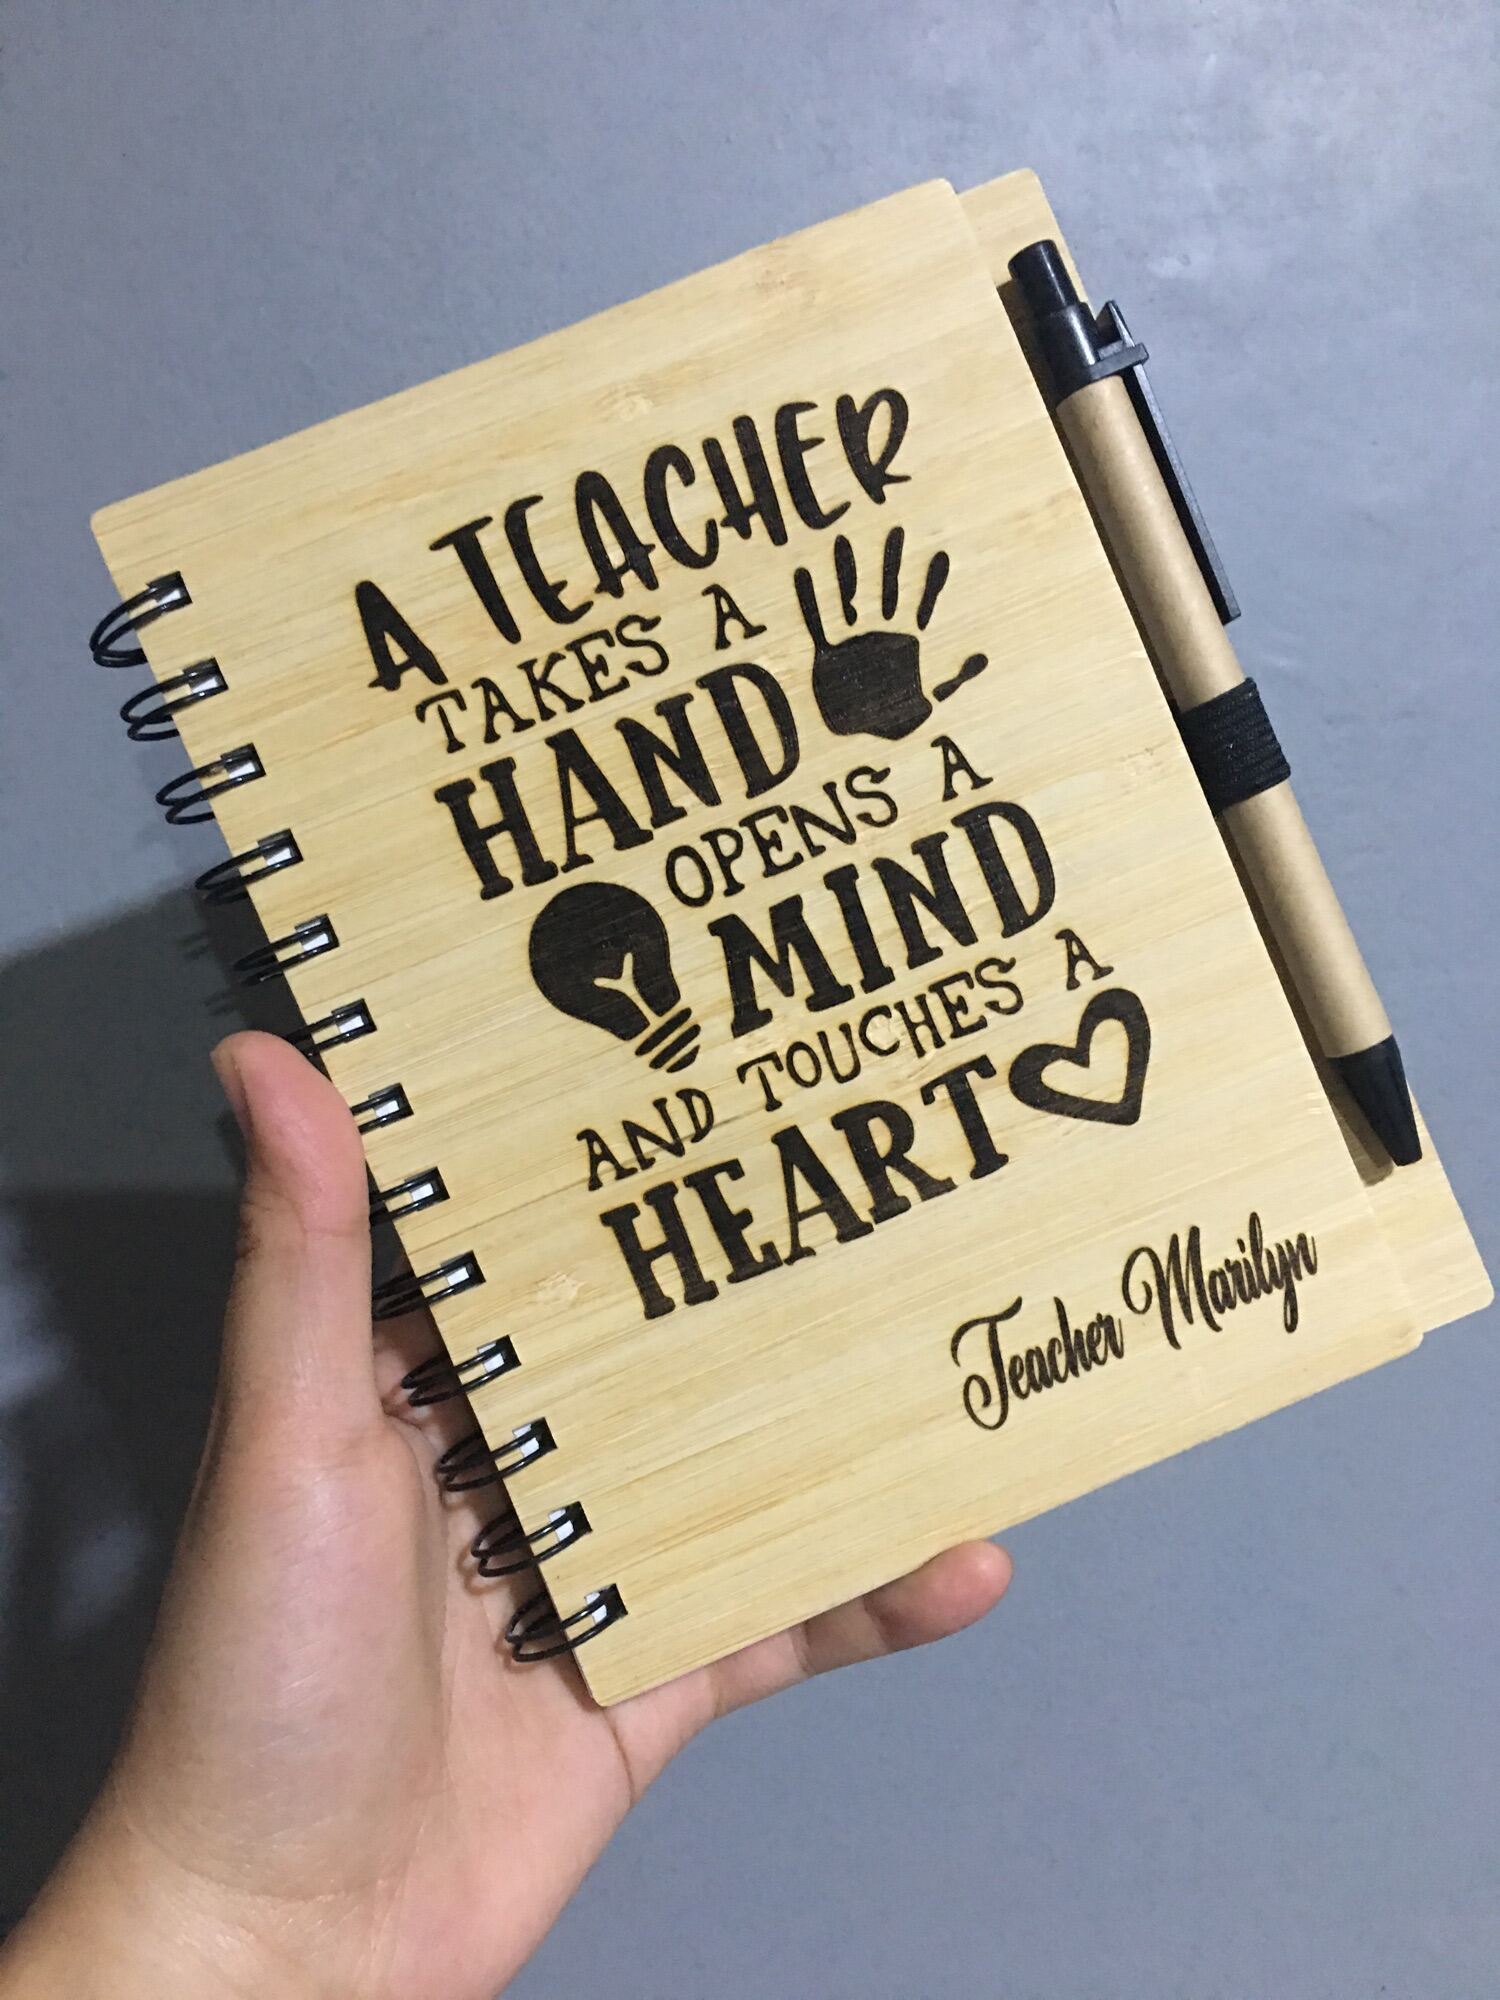 A TEACHER
TAKES A
HAND
OPENS A
MIND
AND TOUCHES A
HEART
Teacher Marilyn